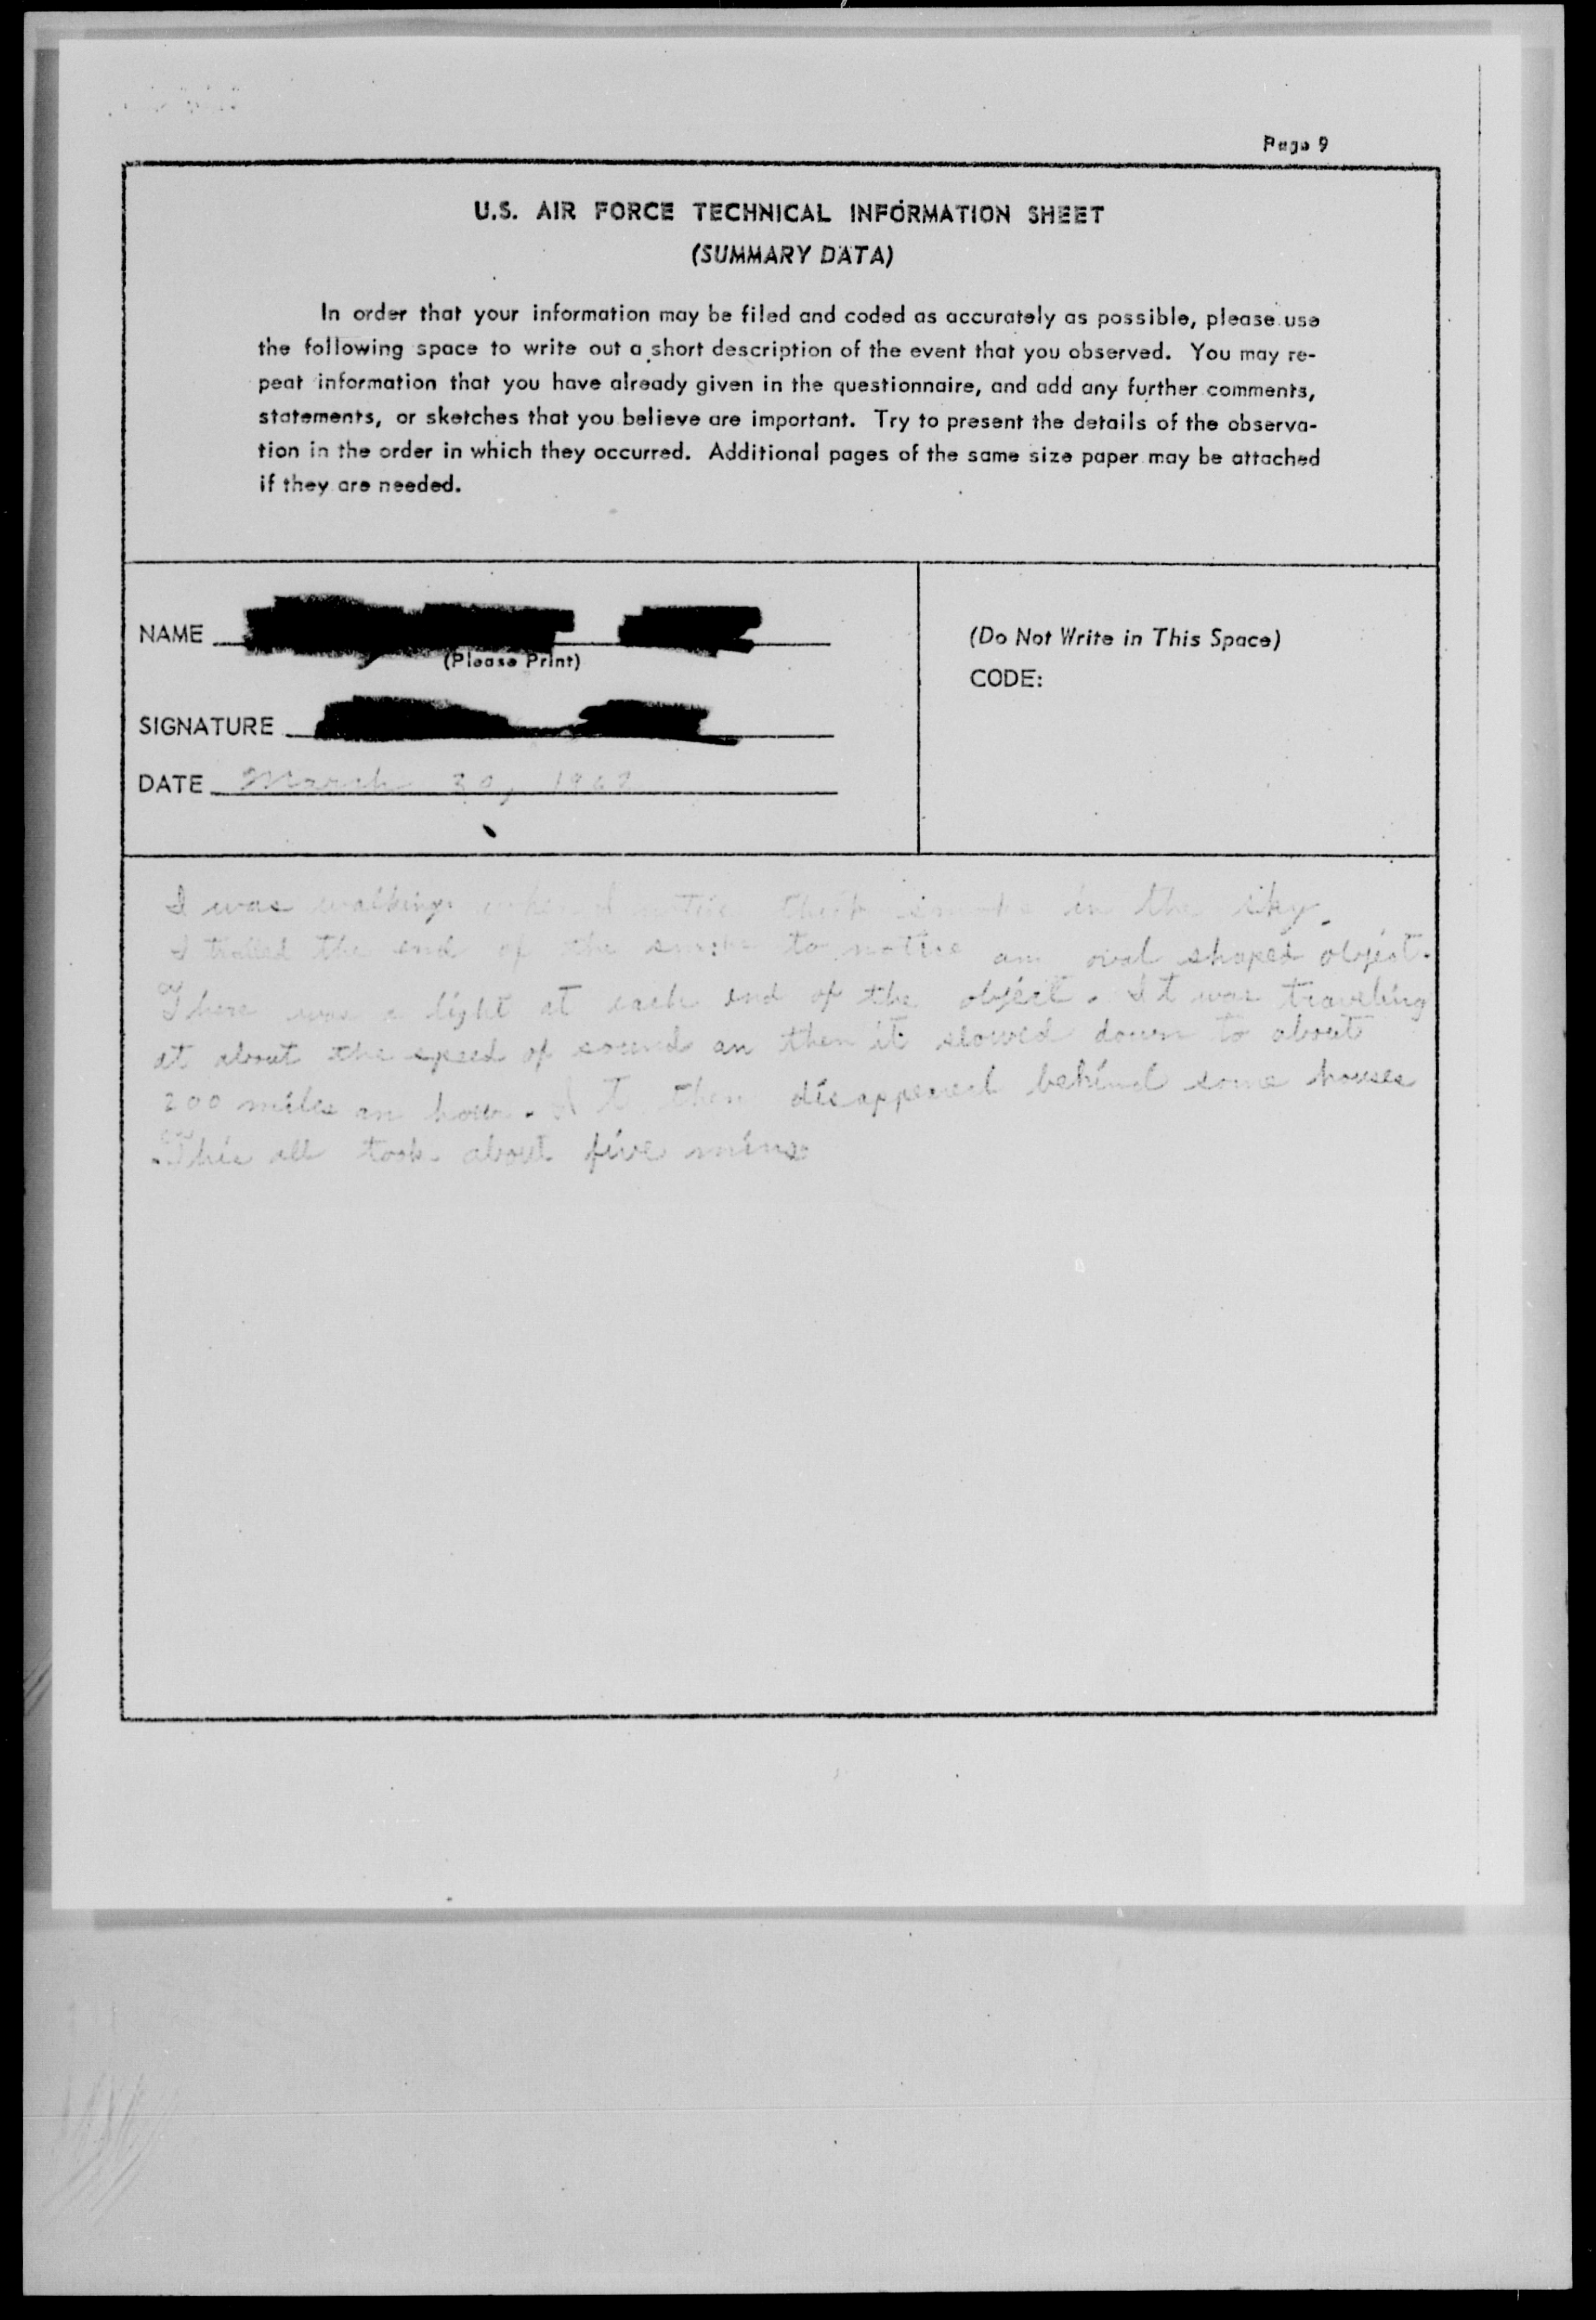 Page 9
U.S. AIR FORCE TECHNICAL INFORMATION SHEET
(SUMMARY DATA)
In order that your information may be filed and coded as accurately as possible, please use
the following space to write out a short description of the event that you observed. You may re-
peat information that you have already given in the questionnaire, and add any further comments,
statements, or sketches that you believe are important. Try to present the details of the observa-
tion in the order in which they occurred. Additional pages of the same size paper may be attached
if they are needed.
NAME
(Please Print)
SIGNATURE
DATE March 30,
(Do Not Write in This Space)
CODE:
I was walking when I notice thick smoke in the sky.
I the end of the smoke to notice an oval shaped object.
There was a light at each end of the object. It was traveling
at about the speed of sound an then it slowed down to about
200 miles an hour. It then disappeared behind some houses
.This all took about five mins